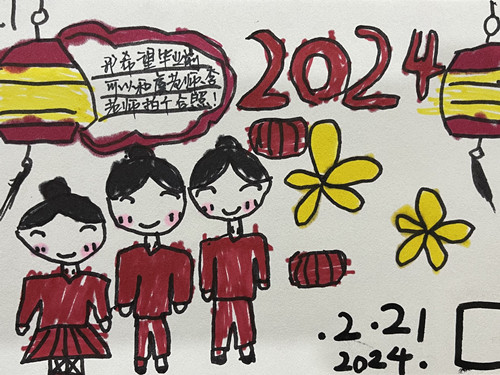 我希望毕业前
可以和老师
老师拍个合照！
2024
.2.21
2024.